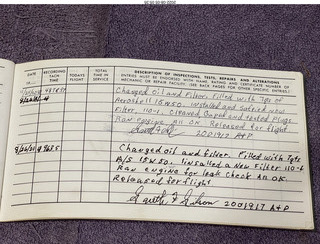 DATE
RECORDING
TACH
TIME
TODAY'S
FLIGHT
TOTAL
TIME IN
SERVICE
DESCRIPTION OF INSPECTIONS, TESTS, REPAIRS AND ALTERATIONS
ENTRIES MUST BE ENDORSED WITH NAME, RATING AND CERTIFICATE NUMBER OF
MECHANIC OR REPAIR FACILITY. (SEE BACK PAGES FOR OTHER SPECIFIC ENTRIES.)
Changed Oil and Filter. Filled with 7qts of
Aeroshell 15W50. Installed and Safetied new
Filter. Cleaned, Gapped and tested Plugs.
Ran engine All OK. Released for flight
2001917 A+P
Changed oil and filter. Filled with 7qts
A/S 15W50. Installed a New Filter
Ran engine for leak Check All OK.
Released for flight
2001917 A+P